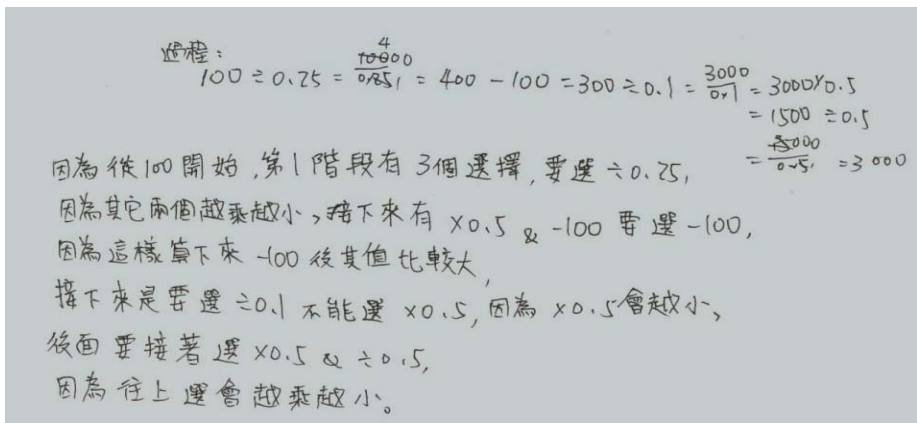 過程：
100÷0.25 = 10000/0.25 = 400 - 100 = 300÷0.1 = 3000/0.1 = 3000×0.5
= 1500÷0.5
= 15000/0.5 = 3000
因為從100開始，第1階段有3個選擇，要選÷0.25，
因為其它兩個越乘越小，接下來有×0.5 & -100要選-100，
因為這樣算下來-100後其值比較大，
接下來是要選÷0.1不能選×0.5，因為×0.5會越小，
後面要接著選×0.5 & ÷0.5，
因為往上選會越乘越小。